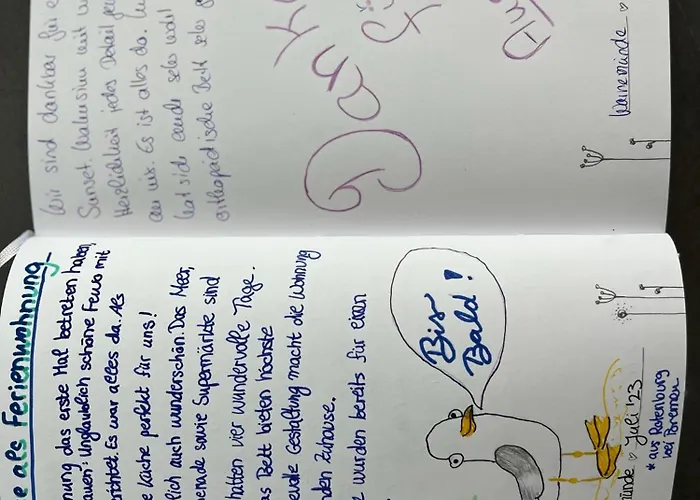 Wir sind dankbar für
Sunset. Wahnsinn mit
Herzlichkeit jedes Detail
an nix. Es ist alles da.
hat sich auch sehr wohl
orthopädische Bett sehr
Dank
Warnemünde ♡
e als Ferienwohnung
nung das erste Mal betreten haben,
auen: Unglaublich schöne Fewo mit
richtet. Es war alles da. Als
e Küche perfekt für uns!
lich auch wunderschön. Das Meer,
enade sowie Supermärkte sind
hatten vier wundervolle Tage.
as Bett bieten höchste
evolle Gestaltung macht die Wohnung
nden Zuhause.
e wurden bereits für einen
Bis
Bald!
ünde ♡ Juli '23
* aus Rotenburg
bei Bremen